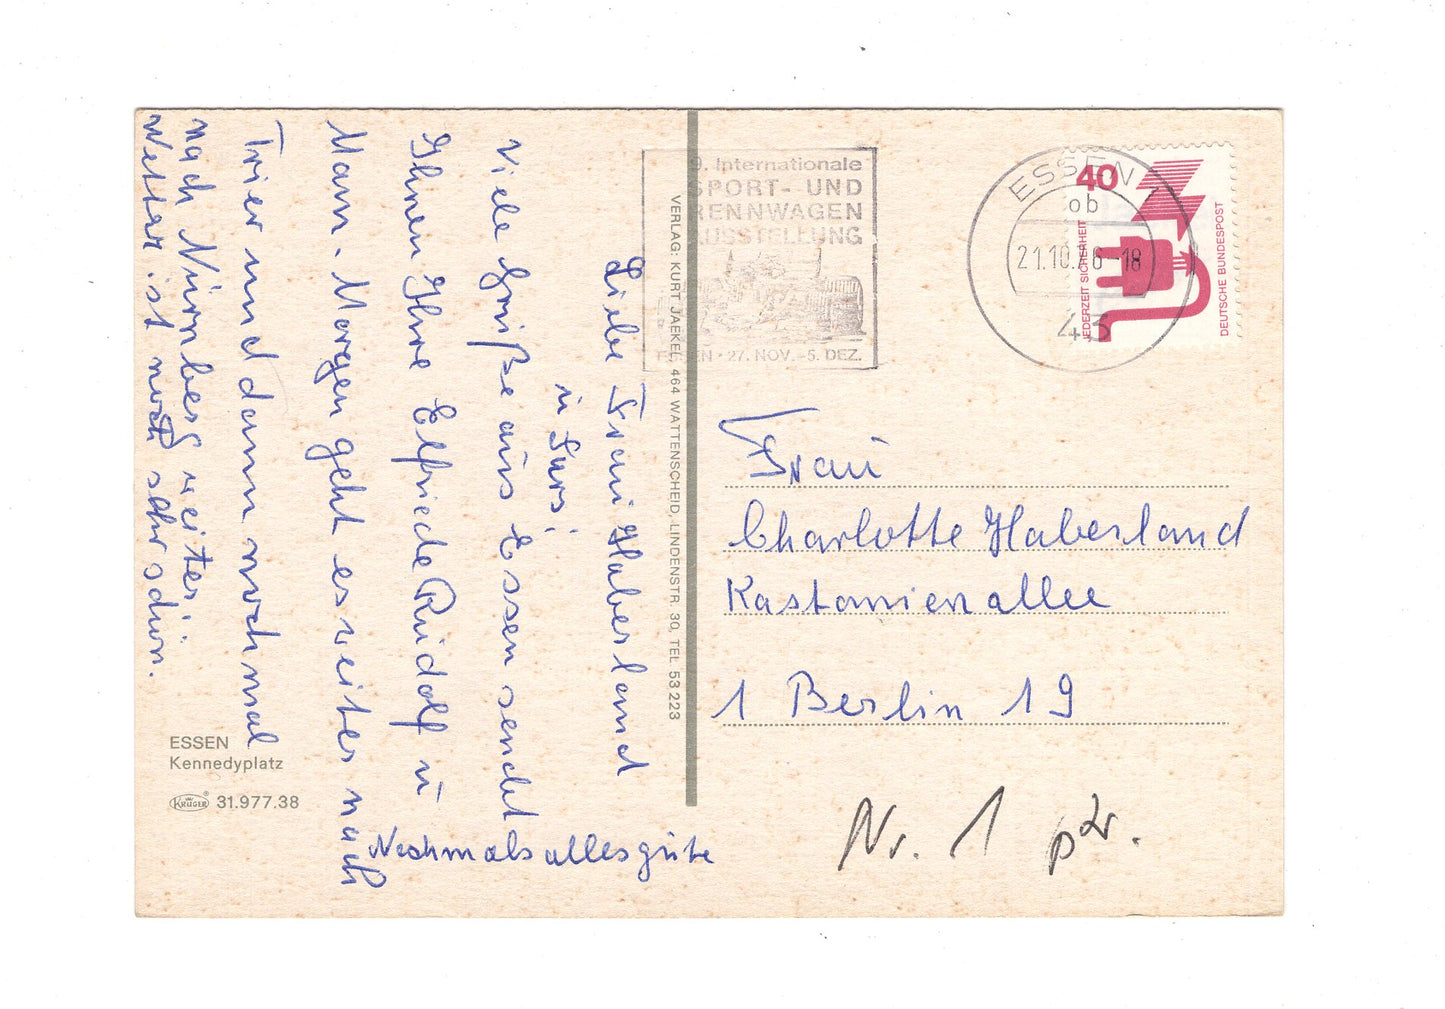 Liebe Frau Haberland
u
Viele Grüße aus Essen sendet
Ihnen Ihre Elfriede Rudolf u
Mann. Morgen geht es weiter nach
Trier und dann nochmal
nach Nürnberg weiter.
Wetter ist noch sehr schön.
Nochmals alles gute
ESSEN
Kennedyplatz
KRÜGER® 31.977.38
VERLAG: KURT JAEKEL, 464 WATTENSCHEID, LINDENSTR. 30, TEL 53 223
9. Internationale
SPORT- UND
RENNWAGEN
AUSSTELLUNG
ESSEN · 27. NOV.-5. DEZ.
ESSEN
ob
21.10.76-18
43
40
JEDERZEIT SICHERHEIT
DEUTSCHE BUNDESPOST
Frau
Charlotte Haberland
Kastanienallee
1 Berlin 19
Nr. 1